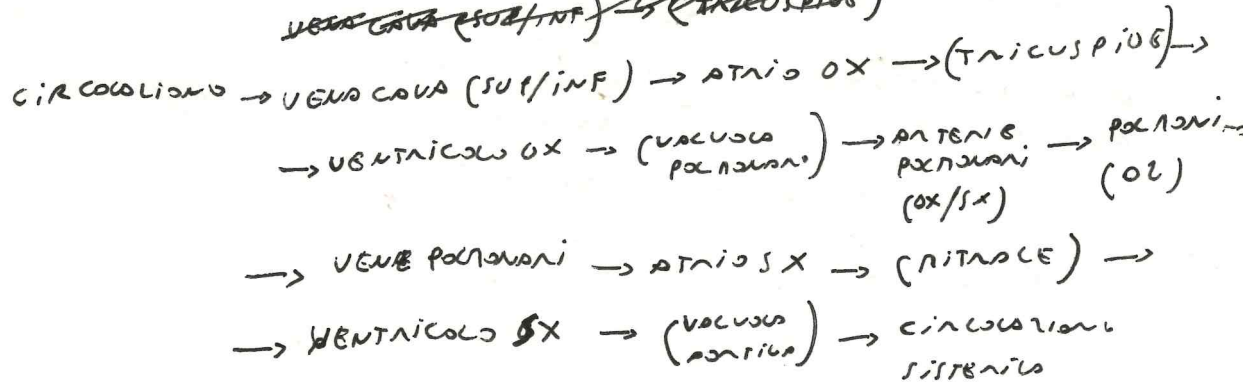 VENA CAVA (SUP/INF) → (TRICUSPIDE)
CIRCOLAZIONE → VENA CAVA (SUP/INF) → ATRIO DX → (TRICUSPIDE) →
→ VENTRICOLO DX → (VALVOLA POLMONARI) → ARTERIE POLMONARI (DX/SX) → POLMONI → (O2)
→ VENE POLMONARI → ATRIO SX → (MITRALE) →
→ VENTRICOLO SX → (VALVOLA AORTICA) → CIRCOLAZIONE SISTEMICA